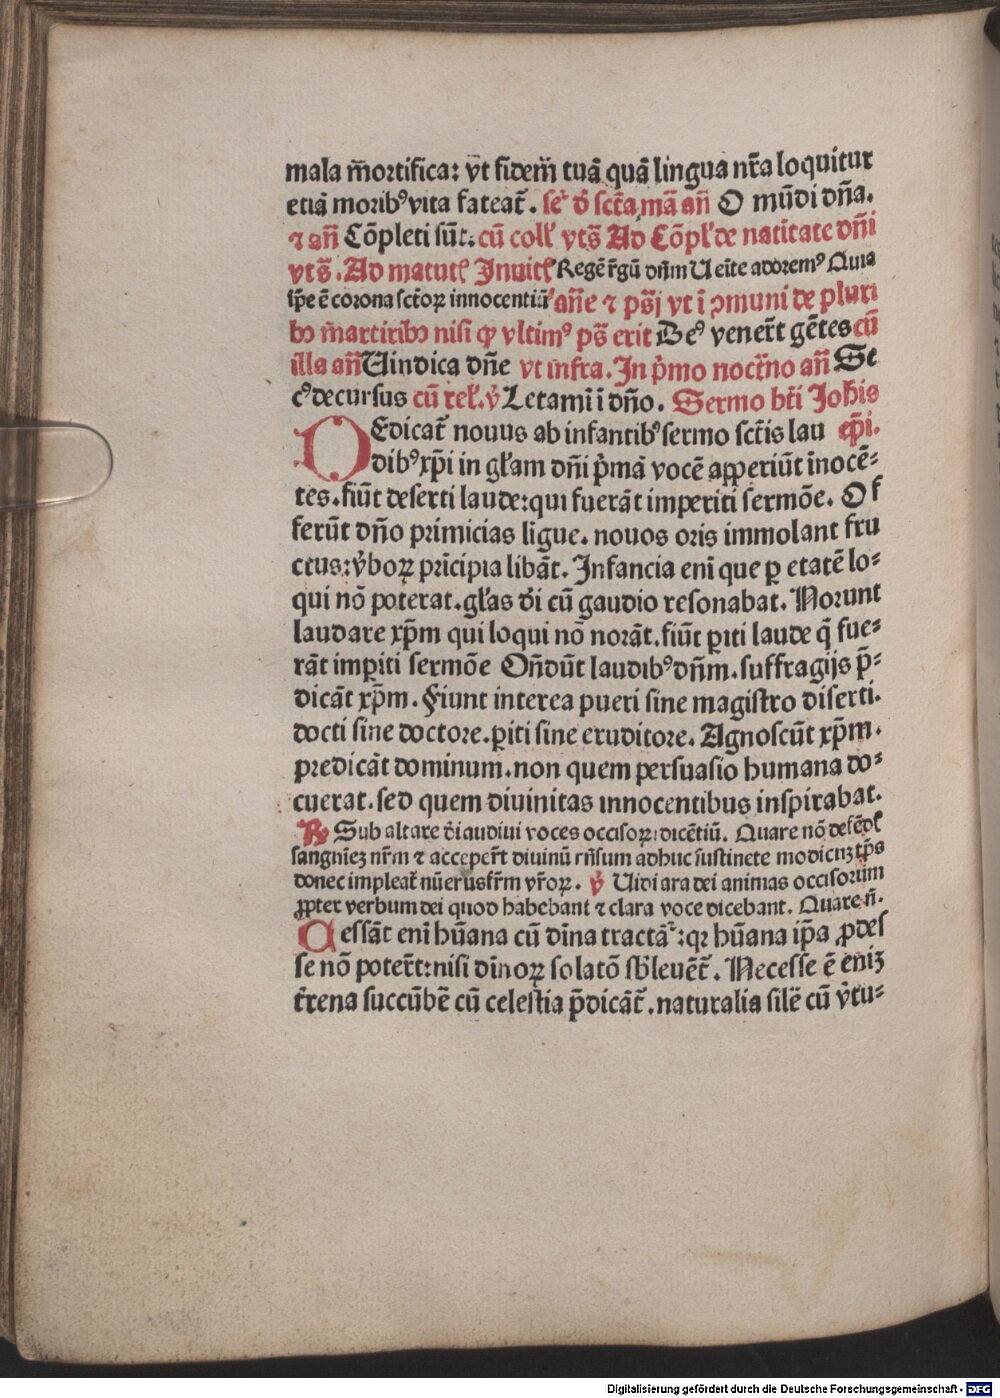 mala m̄ortifica: vt fidem̄ tuā quā lingua nr̄a loquitur
etiā moribꝰ vita fateat̄. se᷒ d̄ sct̄a mā an̄ O mūdi dn̄a.
⁊ an̄ Cōpleti sūt. cū coll' vts̄ Ad Cōpl' de natitate dn̄i
vts̄. Ad matut' Inuit' Regē r̄gū dn̄m Uenīte adoremꝰ Quia
ip̄e ē corona sct̄oꝝ innocentiū an̄e ⁊ ps̄i vt ī ꝯmuni de pluri
bꝫ m̄artiribꝫ nisi ꝙ vltimꝰ ps̄ erit Deꝰ venerūt gētes cū
illa an̄ Uindica dn̄e vt infra. In p̄mo noct̄no an̄ Se
cꝰ decursus cū rel'. v̄ Letamī i dn̄o. Sermo bt̄i Joh̄is
DEdicat̄ nouus ab infantibꝰ sermo sct̄is lau ep̄i.
dibꝰ xp̄i in gl'am dn̄i p̄mā vocē apperiūt inocē-
tes. fiūt deserti laude: qui fuerāt imperiti sermōe. Of
ferūt dn̄o primicias ligue. nouos oris immolant fru
ctus: v̄boꝝ pr̄icipia libāt. Infancia eni que ꝑ etatē lo-
qui nō poterat. gl'as d̄i cū gaudio resonabat. Norunt
laudare xp̄m qui loqui nō norāt. fiūt ꝑiti laude q̄ fue-
rāt imꝑiti sermōe On̄dūt laudibꝰ dn̄m. suffragijs p̄-
dicāt xp̄m. Fiunt interea pueri sine magistro diserti.
docti sine doctore. ꝑiti sine eruditore. Agnoscūt xp̄m.
predicāt dominum. non quem persuasio humana do-
cuerat. sed quem diuinitas innocentibus inspirabat.
℟ Sub altare d̄i audiui voces occisoꝝ: dicētiū. Quare nō defēd'
sangniez nr̄m ⁊ acceper̄t diuinū rn̄sum adhuc sustinete modicuꝫ tp̄s
donec impleat̄ nūerus fr̄m vr̄oꝝ. v̄ Uidi ara dei animas occisorum
ꝓpter verbum dei quod habebant ⁊ clara voce dicebant. Quare n̄.
Cessāt eni hūana cū dīna tractāt: qꝛ hūana ip̄a ꝓdes
se nō poter̄t: nisi dīnoꝝ solatō sb̄leuēt̄. Necesse ē eniꝫ
t̄rena succūbē cū celestia p̄dicāt̄. naturalia silē cū v̄tu-
Digitalisierung gefördert durch die Deutsche Forschungsgemeinschaft - DFG